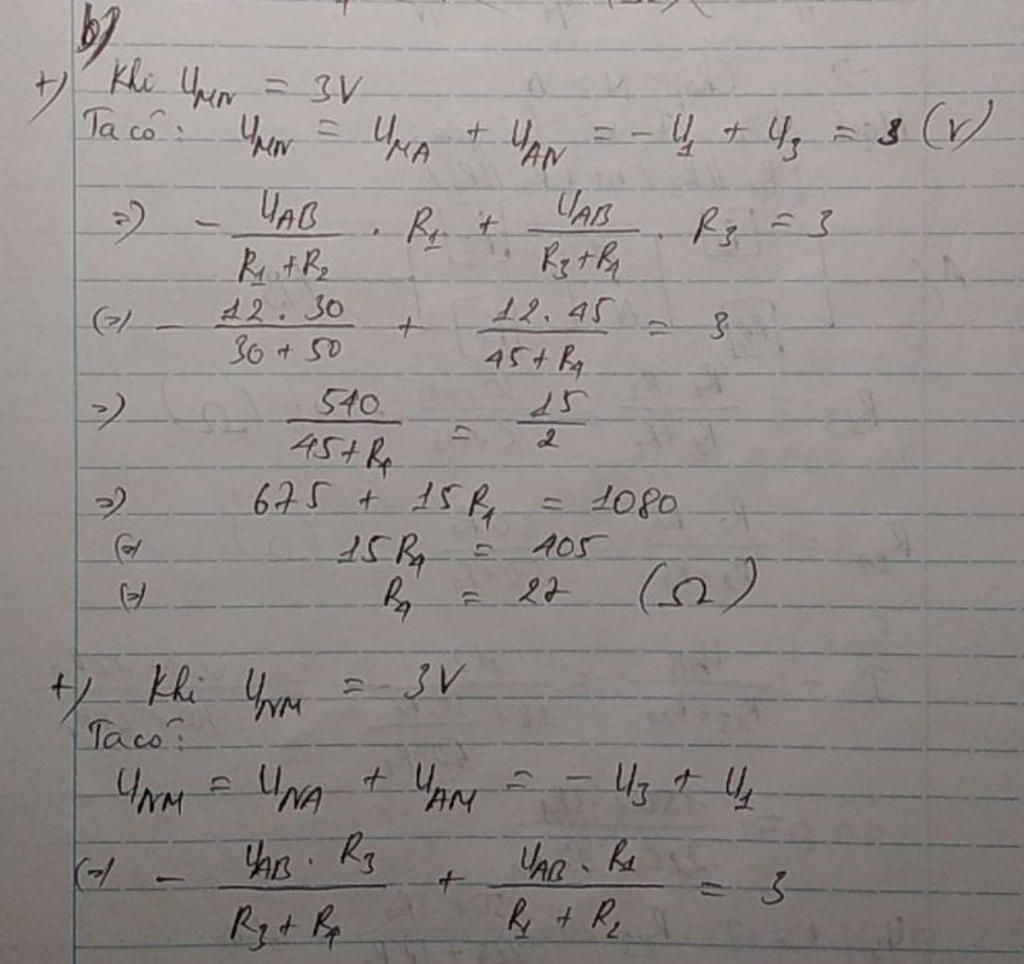 b)
+) Khi U_MN = 3V
Ta có: U_MN = U_MA + U_AN = - U_1 + U_3 = 3 (V)
=) - U_AB / (R_1 + R_2) . R_1 + U_AB / (R_3 + R_4) . R_3 = 3
(=) - 12 . 30 / (30 + 50) + 12 . 45 / (45 + R_4) = 3
=) 540 / (45 + R_4) = 15 / 2
=) 675 + 15 R_4 = 1080
(=) 15 R_4 = 405
(=) R_4 = 27 (Ω)
+) Khi U_NM = 3V
Ta có:
U_NM = U_NA + U_AM = - U_3 + U_1
(=) - U_AB . R_3 / (R_3 + R_4) + U_AB . R_1 / (R_1 + R_2) = 3